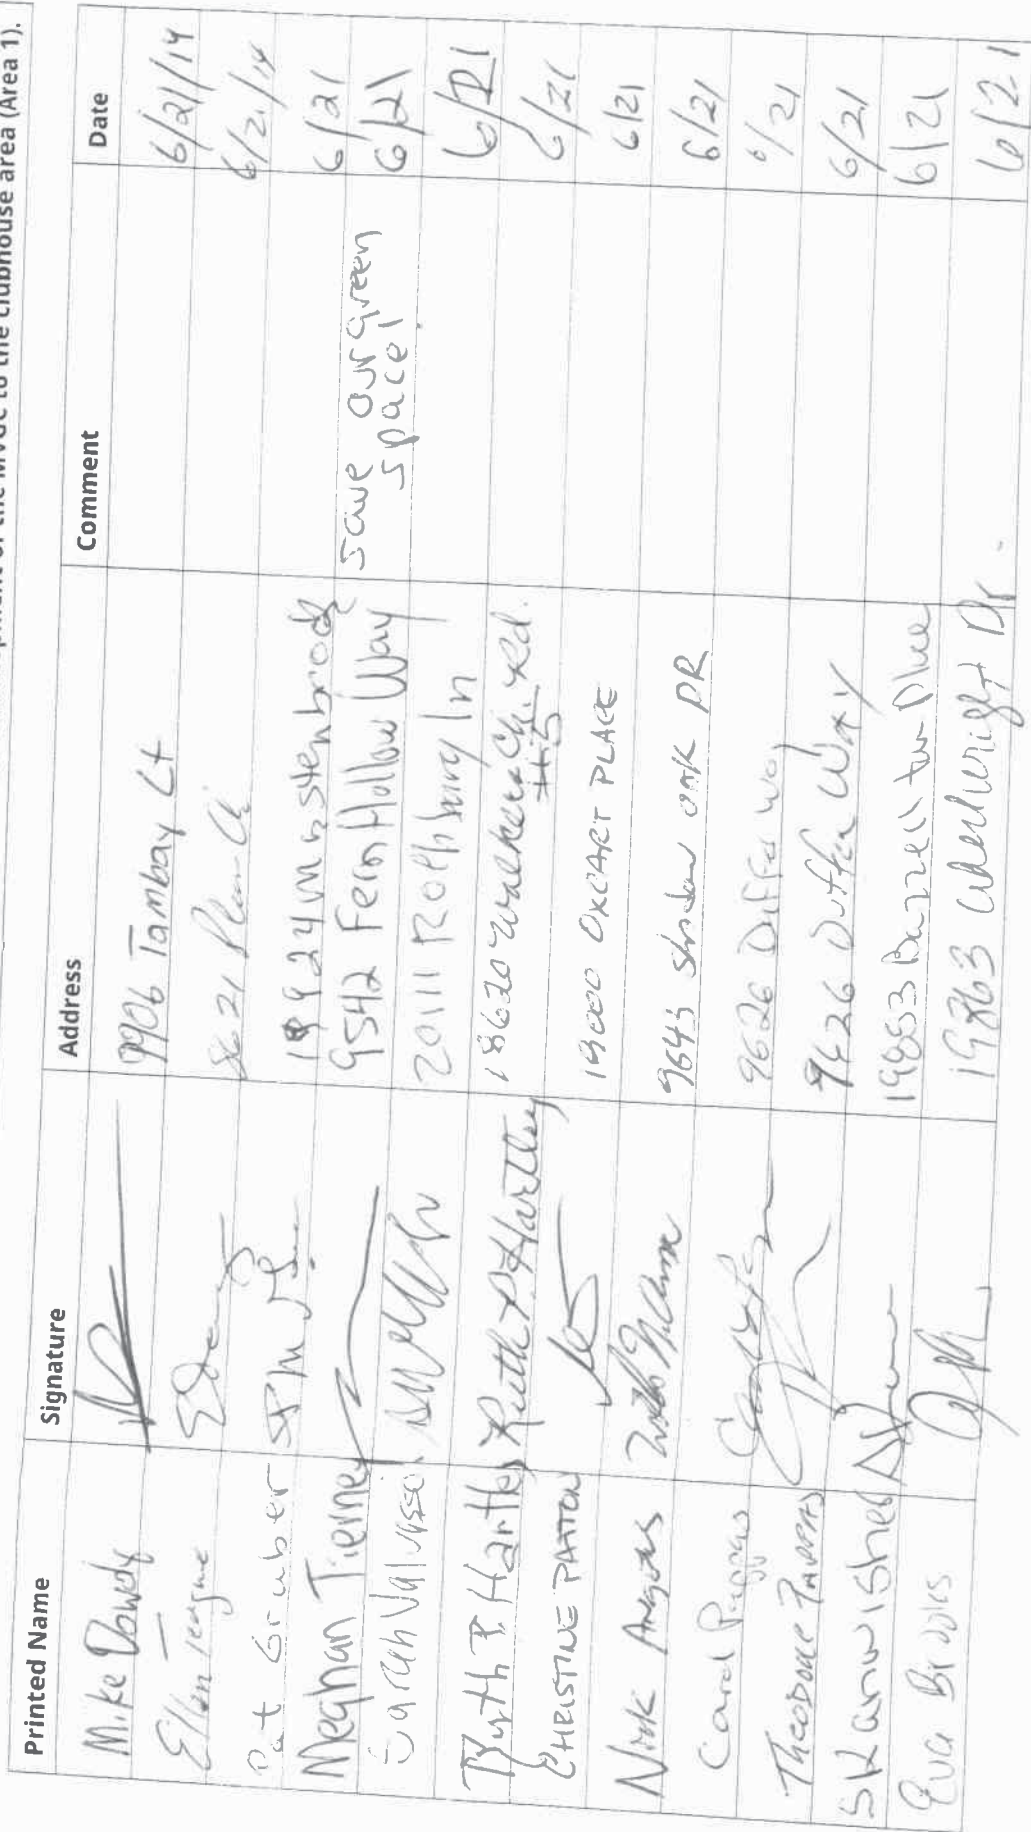 opment of the MVGC to the clubhouse area (Area 1).
Printed Name Signature Address Comment Date
Mike Dowdy 9906 Tambay Ct 6/21/14
Ellen Teague 8621 6/21/14
Pat Gruber 19924 6/21
Meghan Tierney 9542 Fern Hollow Way Save our green space! 6/21
Sarah 20111 Rothbury ln 6/21
Ruth P. Hartley Ruth P. Hartley 18620 Walkers Ch. Rd. #5 6/21
CHRISTINE PATTON 19000 OXCART PLACE 6/21
Nick 9643 Shadow OAK DR 6/21
Carol Pappas 9626 Duffer Way 6/21
Theodore Pappas 9626 Duffer Way 6/21
19853 6/21
Eva Brooks 19863 Wheelwright Dr. 6/21